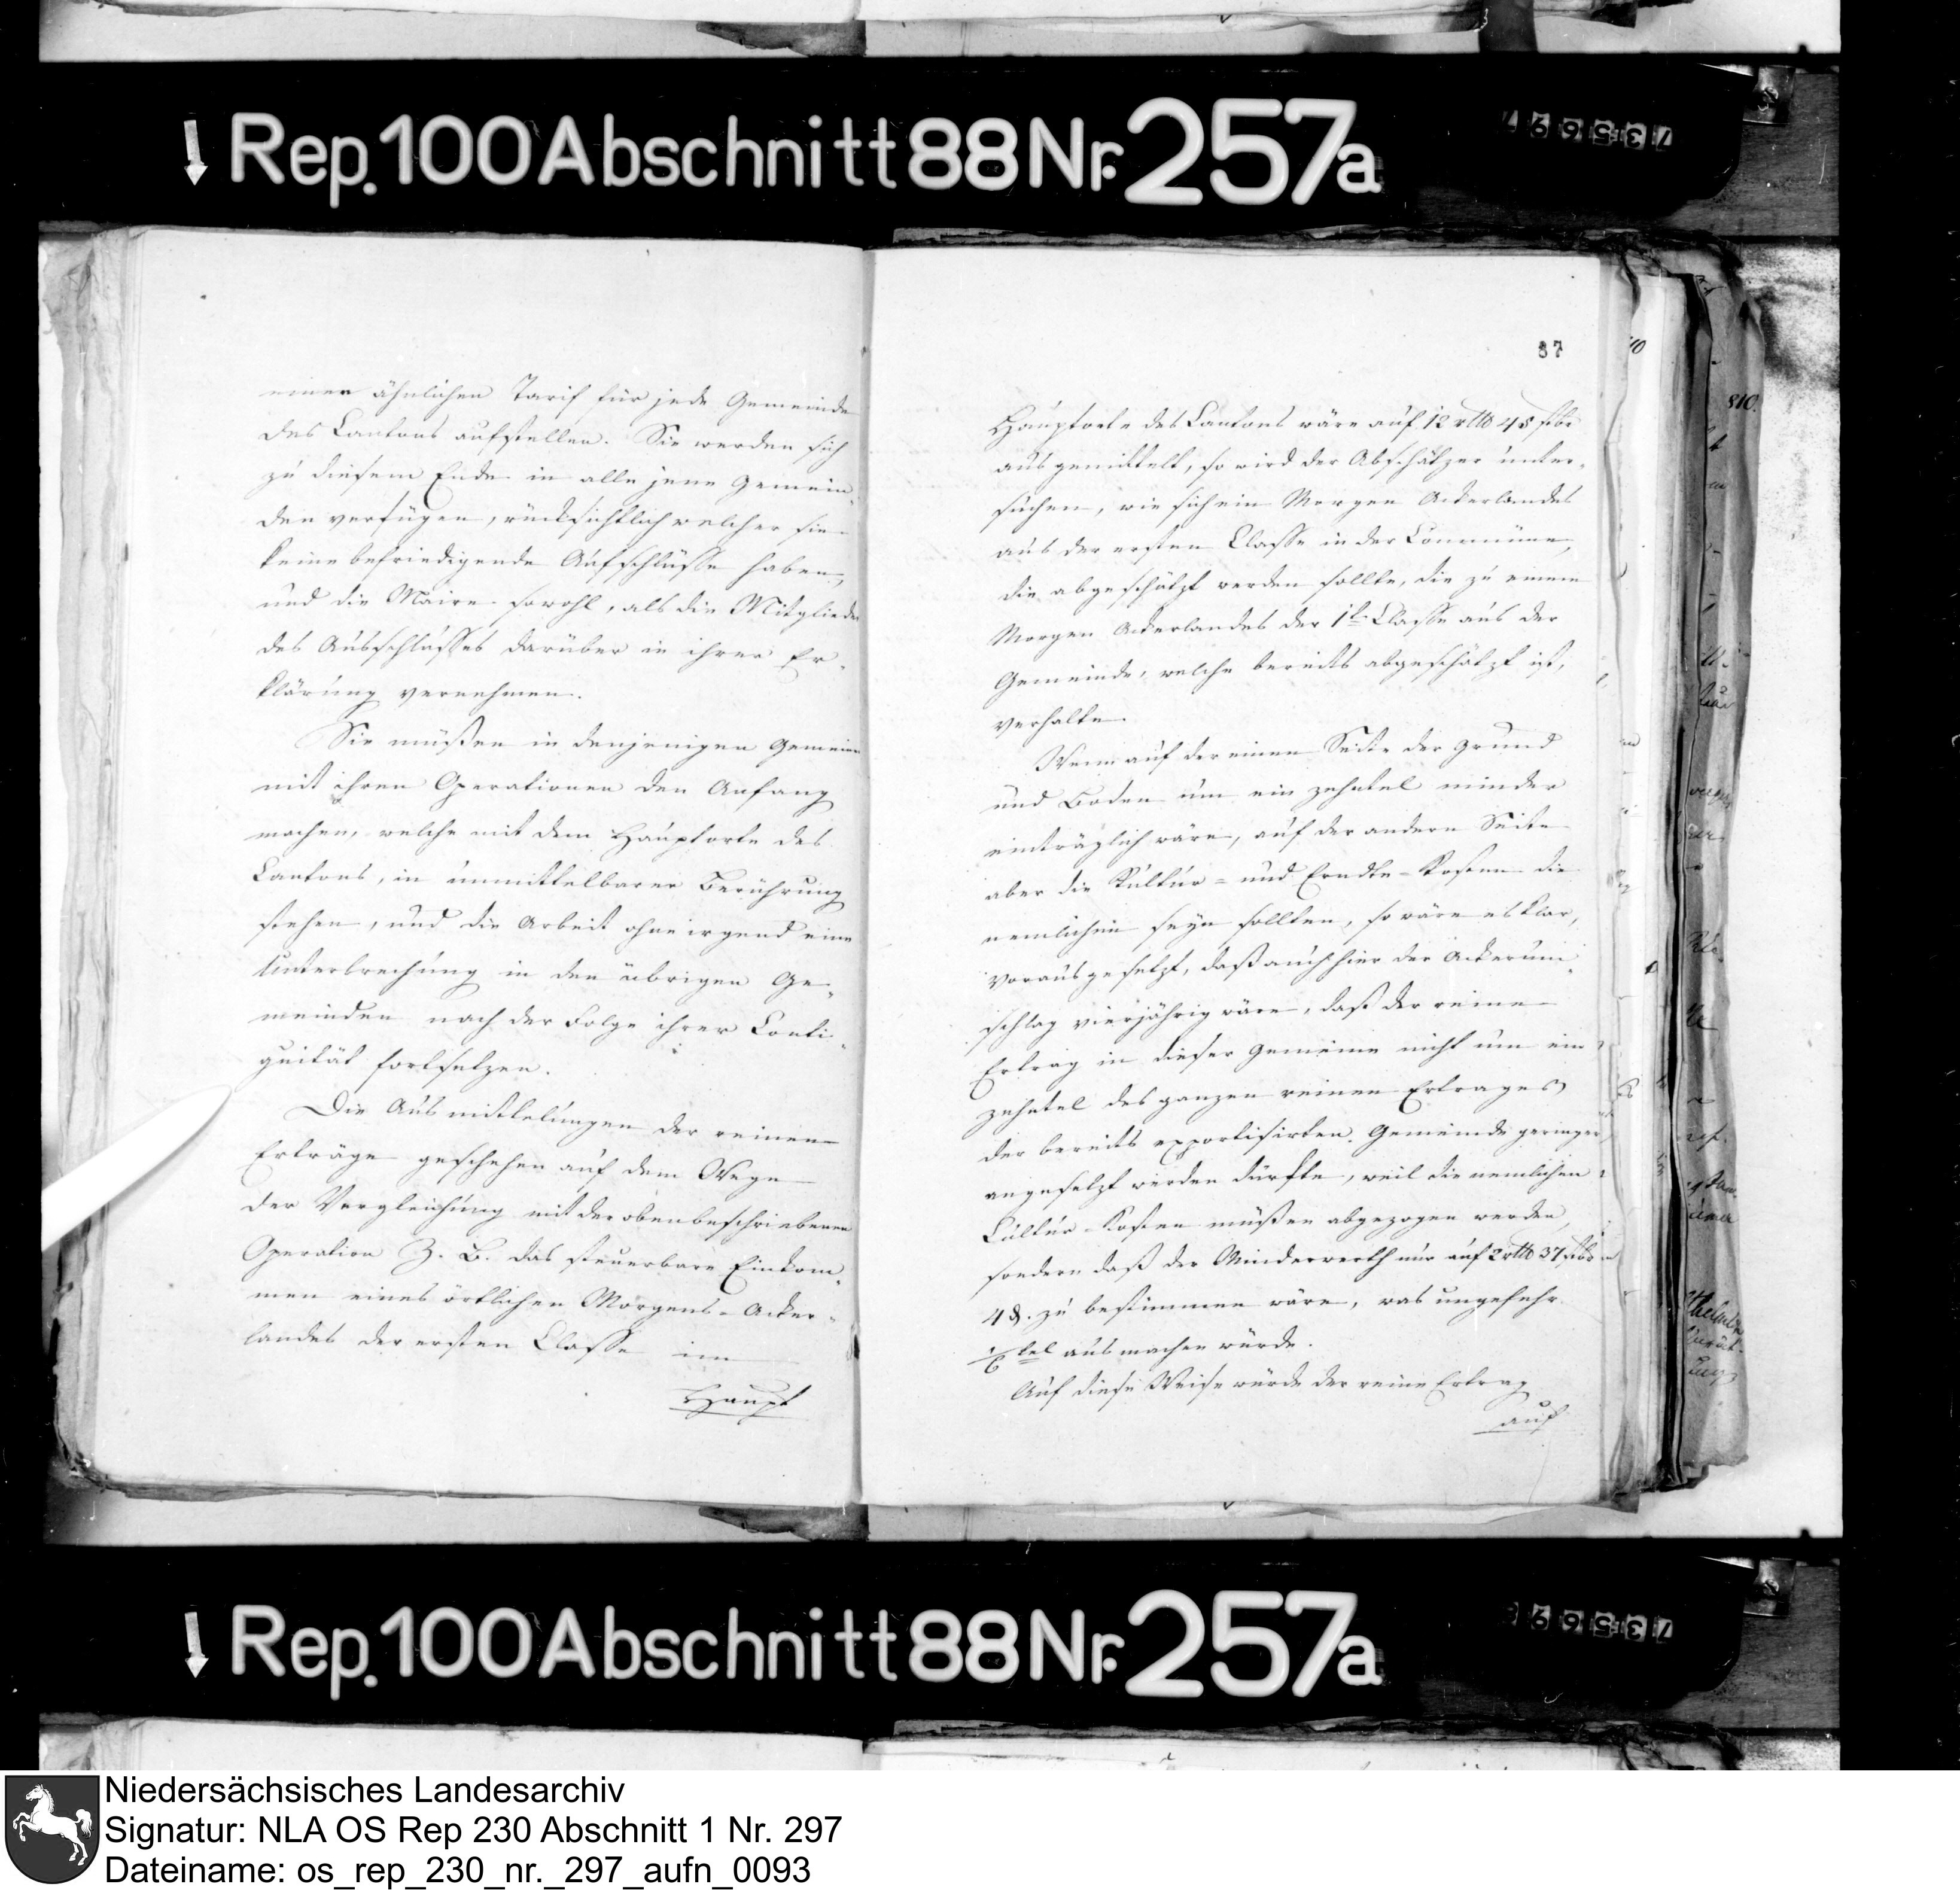 Rep. 100 Abschnitt 88 Nr. 257a
735697
einen ähnlichen Tarif für jede Gemeinde
des Cantons aufstellen. Sie werden sich
zu diesem Ende in alle jene Gemein-
den verfügen, rücksichtlich welcher sie
keine befriedigende Aufschlüsse haben,
und die Maire sowohl, als die Mitglieder
des Ausschlusses darüber in ihrer Er-
klärung vernehmen.
Sie müßen in denjenigen Gemeinen
mit ihren Operationen den Anfang
machen, welche mit dem Hauptorte des
Cantons, in unmittelbarer Berührung
stehen, und die Arbeit ohne irgend eine
Unterbrechung in den übrigen Ge-
meinden nach der Folge ihrer Conti-
guität fortsetzen.
Die Ausmittelungen der reinen
Erträge geschehen auf dem Wege
der Vergleichung mit der obenbeschriebenen
Operation Z. B. das steuerbare Einkom-
men eines örtlichen Morgens-Acker-
landes der ersten Classe im
Haupt
87
Hauptorte des Cantons wäre auf 12 rtlr 48 stbr
ausgemittelt, so wird der Abschätzer unter-
suchen, wie sich ein Morgen Ackerlandes
aus der ersten Classe in der Commüne,
die abgeschätzt werden sollte, die zu einem
Morgen Ackerlandes der 1t Classe aus der
Gemeinde, welche bereits abgeschätzt ist,
verhalte.
Wenn auf der einen Seite der Grund
und Boden um ein zehntel minder
einträglich wäre, auf der andern Seite
aber die Kultur- und Erndte-Kosten die
nemlichen seyn sollten, so wäre es klar,
vorausgesetzt, daß auch hier der Ackerum-
schlag vierjährig wäre, daß der reine
Ertrag in dieser Gemeine nicht um ein
zehntel des ganzen reinen Ertrages
der bereits expertisirten Gemeinde geringer
angesetzt werden dürfte, weil die nemlichen
Cultur-Kosten müßen abgezogen werden,
sondern daß der Minderwerth nur auf 2 rtlr 37 stbr
4 d. zu bestimmen wäre, was ungefehr
1/6 tel ausmachen würde.
Auf diese Weise würde der reine Ertrag
auf
Rep. 100 Abschnitt 88 Nr. 257a
Niedersächsisches Landesarchiv
Signatur: NLA OS Rep 230 Abschnitt 1 Nr. 297
Dateiname: os_rep_230_nr._297_aufn_0093